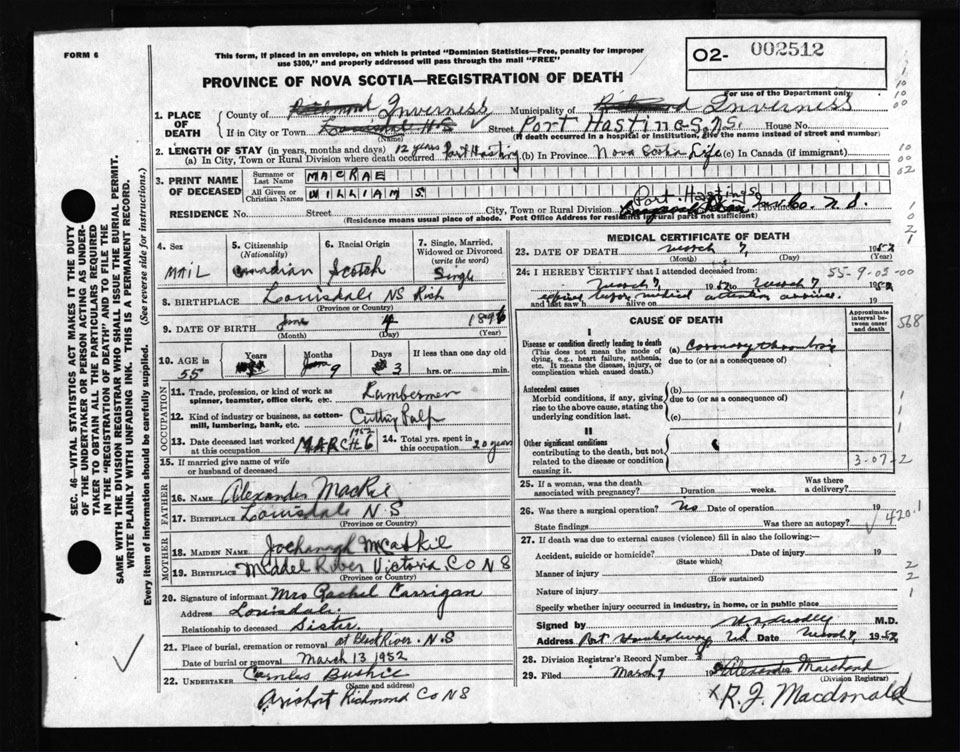 FORM 6
This form, if placed in an envelope, on which is printed "Dominion Statistics—Free, penalty for improper
use $300," and properly addressed will pass through the mail "FREE"
O2- 002512
For use of the Department only
PROVINCE OF NOVA SCOTIA—REGISTRATION OF DEATH
1. PLACE OF DEATH
County of Richmond Inverness Municipality of Richmond Inverness
If in City or Town Louisdale N.S. (Name) Street Port Hastings, N.S. House No.
(If death occurred in a hospital or institution, give the name instead of street and number)
2. LENGTH OF STAY (in years, months and days)
(a) In City, Town or Rural Division where death occurred 12 years Port Hasting (b) In Province Nova Scotia Life (c) In Canada (if immigrant)
3. PRINT NAME OF DECEASED
Surname or Last Name MACRAE
All Given or Christian Names WILLIAM S.
RESIDENCE No. Street City, Town or Rural Division Port Hastings Inv. Co. Province N.S.
(Residence means usual place of abode. Post Office Address for residents of rural parts not sufficient)
4. Sex MAIL
5. Citizenship (Nationality) Canadian
6. Racial Origin Scotch
7. Single, Married, Widowed or Divorced (write the word) Single
8. BIRTHPLACE Louisdale NS Rich
(Province or Country)
9. DATE OF BIRTH June 4 1896
(Month) (Day) (Year)
10. AGE in 55 Years Months 9 Days 3 If less than one day old
hrs. or min.
OCCUPATION
11. Trade, profession, or kind of work as spinner, teamster, office clerk, etc. Lumberman
12. Kind of industry or business, as cotton-mill, lumbering, bank, etc. Cutting Pulp
13. Date deceased last worked at this occupation MARCH 6 1952
14. Total yrs. spent in this occupation 20 years
15. If married give name of wife or husband of deceased
FATHER
16. NAME Alexander MacRae
17. BIRTHPLACE Louisdale N S
(Province or Country)
MOTHER
18. MAIDEN NAME McCaskil
19. BIRTHPLACE Middel River Victoria Co N S
(Province or Country)
20. Signature of informant Mrs Rachel Carrigan
Address Louisdale.
Relationship to deceased Sister
21. Place of burial, cremation or removal at Black River. N.S
Date of burial or removal March 13 1952
22. UNDERTAKER
(Name and address)
Arichat Richmond Co N S
MEDICAL CERTIFICATE OF DEATH
23. DATE OF DEATH March 7, 1952
(Month) (Day)
55-9-03-00
24. I HEREBY CERTIFY that I attended deceased from:
March 7, 1952 to March 7, 1952
and last saw h alive on 19
expired before medical attention arrived.
CAUSE OF DEATH
Approximate interval between onset and death
568
I
Disease or condition directly leading to death (a) Coronary thrombosis
(This does not mean the mode of dying, e.g., heart failure, asthenia, etc. It means the disease, injury, or complication which caused death.)
due to (or as a consequence of)
Antecedent causes (b)
Morbid conditions, if any, giving rise to the above cause, stating the underlying condition last.
due to (or as a consequence of)
(c)
II
Other significant conditions
contributing to the death, but not related to the disease or condition causing it.
3-07-2
25. If a woman, was the death associated with pregnancy? Duration weeks. Was there a delivery?
26. Was there a surgical operation? No Date of operation 19
State findings Was there an autopsy?
420.1
27. If death was due to external causes (violence) fill in also the following:—
Accident, suicide or homicide? Date of injury 19
(State which)
Manner of injury
(How sustained)
Nature of injury
Specify whether injury occurred in industry, in home, or in public place
Signed by M.D.
Address Port Hawkesbury NS Date March 7, 1952
28. Division Registrar's Record Number 8
29. Filed March 7 Alexander Marchand
(Division Registrar)
R. J. Macdonald
SEC. 46—VITAL STATISTICS ACT MAKES IT THE DUTY
OF THE UNDERTAKER OR PERSON ACTING AS UNDER-
TAKER TO OBTAIN ALL THE PARTICULARS REQUIRED
IN THE "REGISTRATION OF DEATH" AND TO FILE THE
SAME WITH THE DIVISION REGISTRAR WHO SHALL ISSUE THE BURIAL PERMIT.
WRITE PLAINLY WITH UNFADING INK. THIS IS A PERMANENT RECORD.
Every item of information should be carefully supplied. (See reverse side for instructions.)